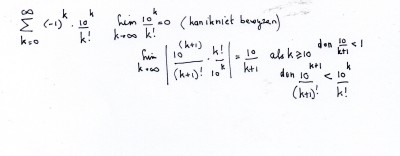 ∞
∑ (-1)^k · 10^k/k!   lim k→∞ 10^k/k! = 0 (kan ik niet bewijzen)
k=0
lim k→∞ | 10^(k+1)/(k+1)! · k!/10^k | = 10/k+1 als k≥10 dan 10/k+1 < 1
dan 10^k+1/(k+1)! < 10^k/k!